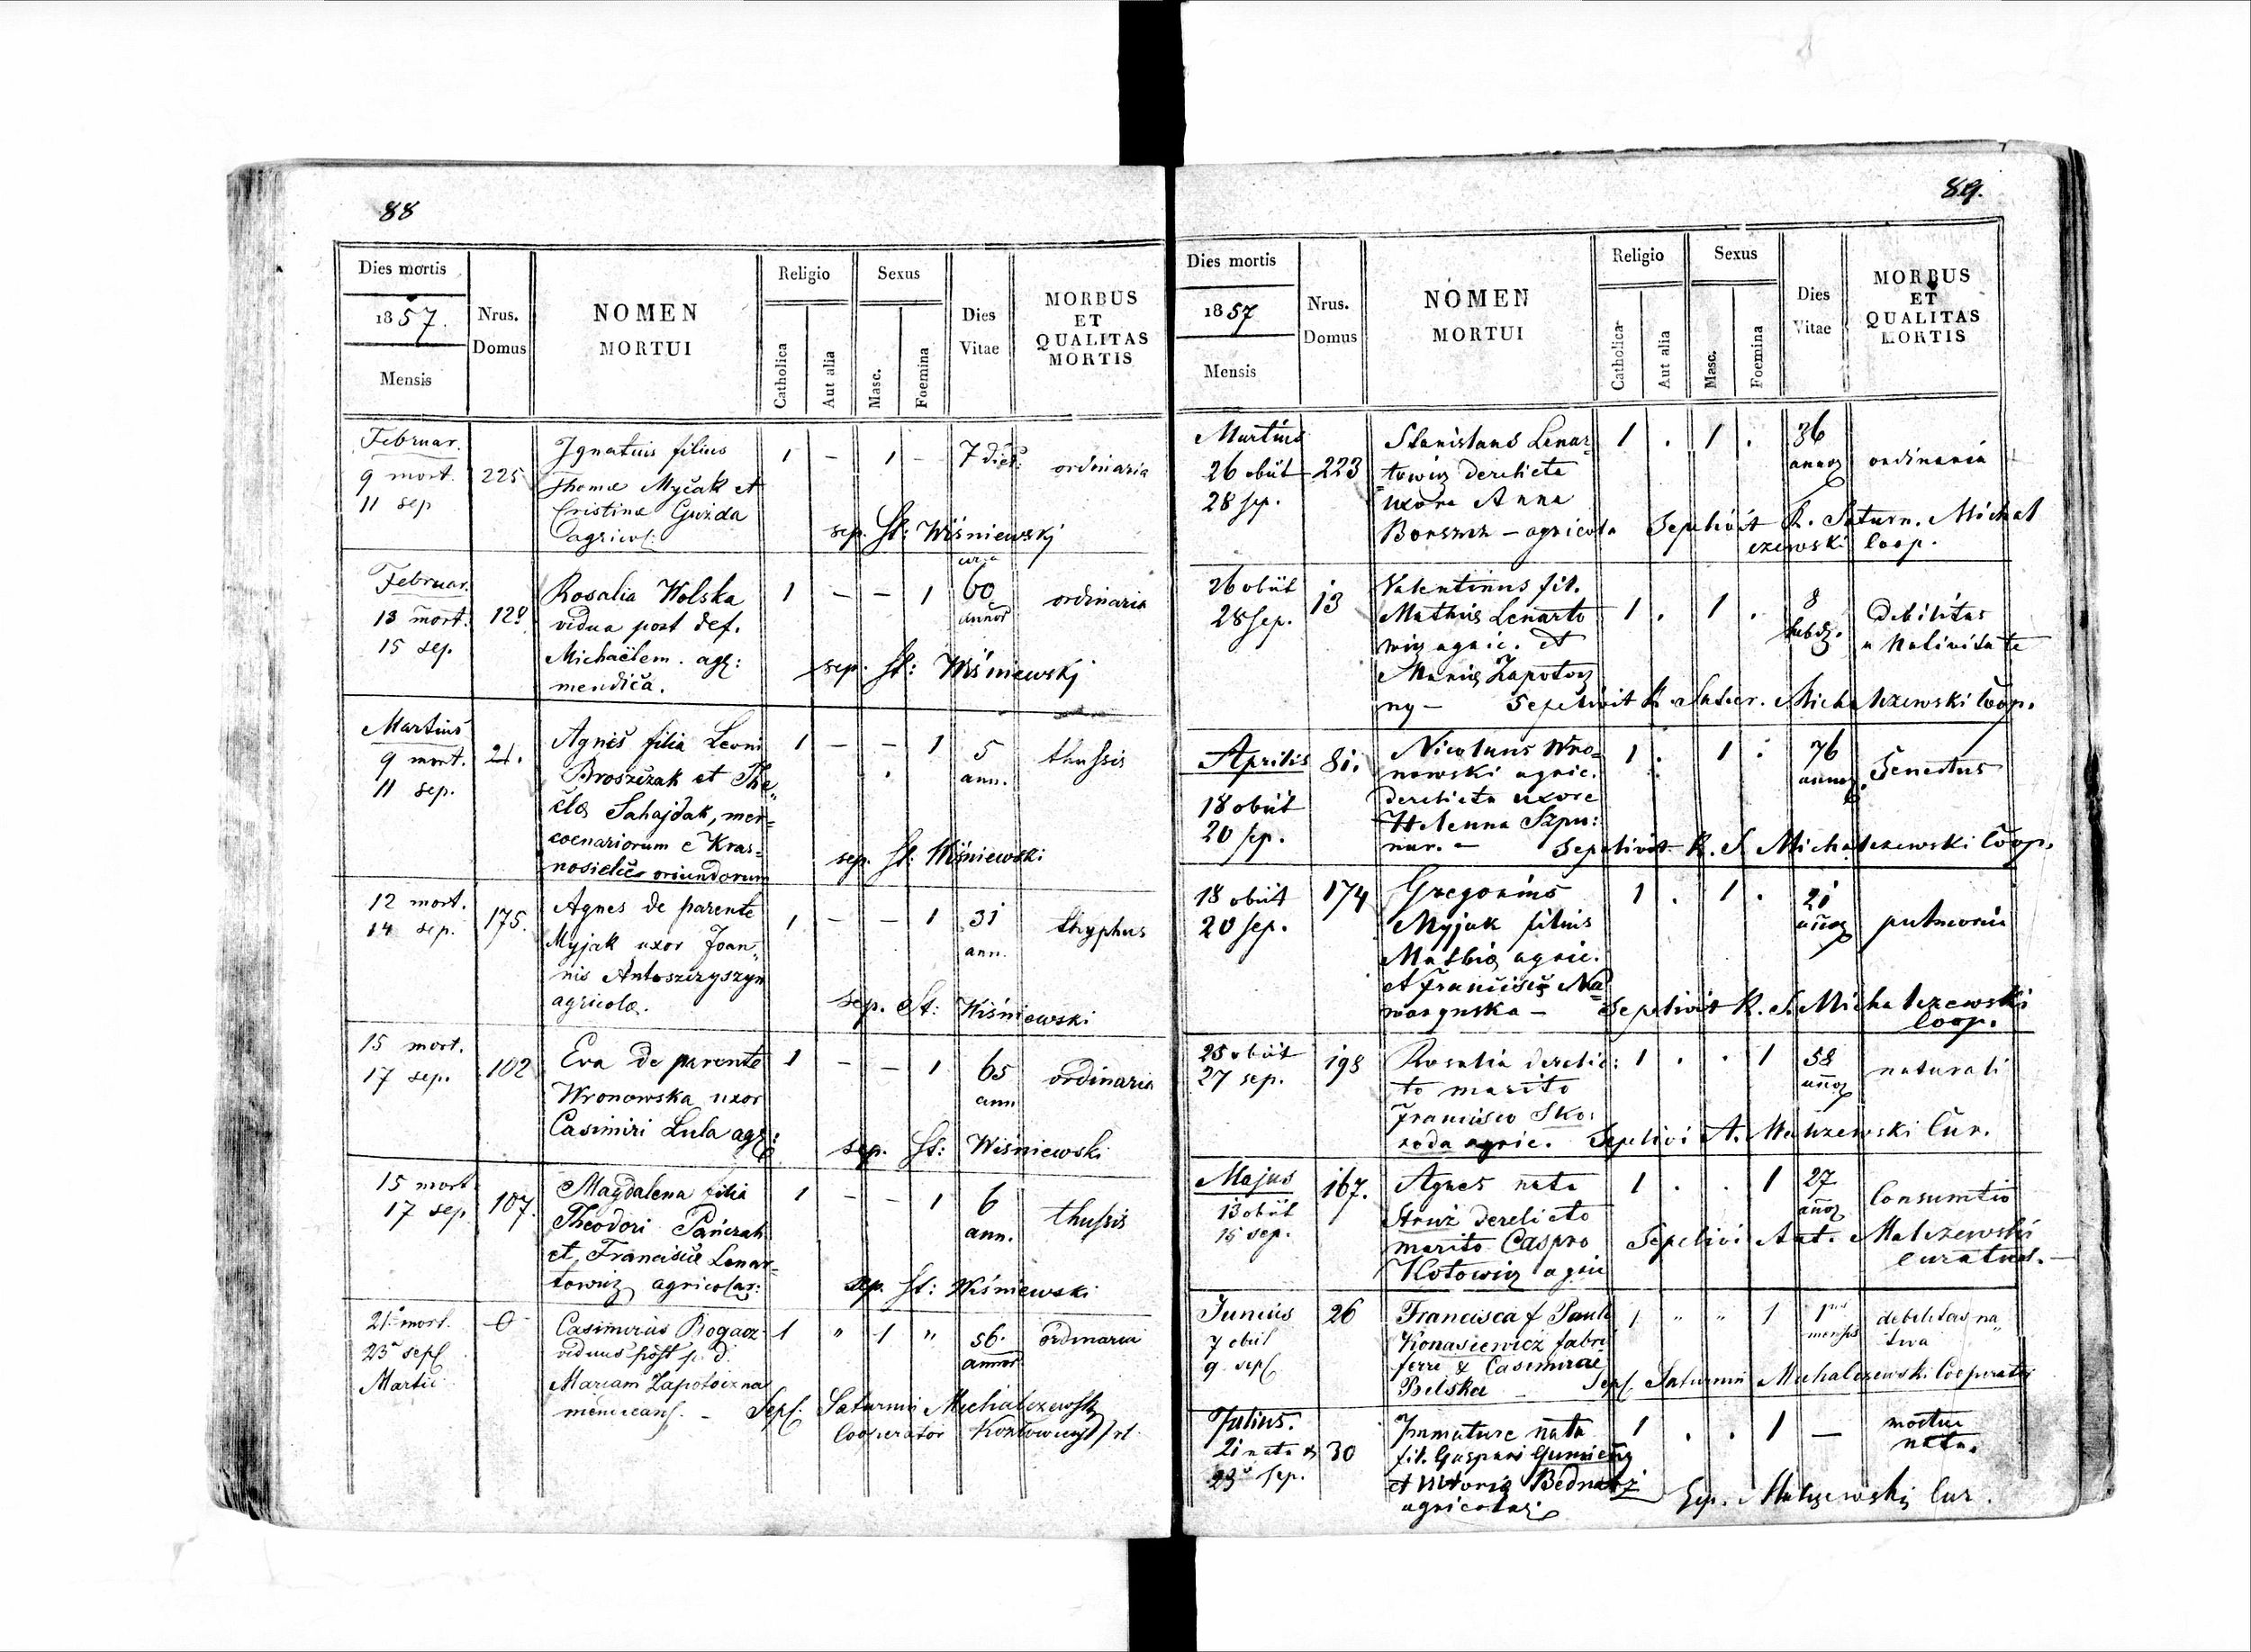 88
Dies mortis
1857.
Mensis
Nrus.
Domus
NOMEN
MORTUI
Religio
Catholica
Aut alia
Sexus
Masc.
Foemina
Dies
Vitae
MORBUS
ET
QUALITAS
MORTIS
Februar.
9 mort. 225 Ignatius filius 1 – 1 – 7 dier: ordinaria
11 sep Thomæ Myčak et
Cristinæ Guzda
agricol: sep. St: Wiśniewskj
Februar.
13 mort. Rosalia Wolska 1 – – 1 60 ordinaria
15 sep. vidua post def. annor
Michaëlem. agr:
mendica. sep. St: Wiśniewskj
Martius
9 mort. 21. Agnes filia Leoni 1 – – 1 5 thussis
11 sep. Broszczak et The„ ann.
clæ Sahajdak, mer=
coenariorum e Kras=
nosielce oriundorum sep. St: Wiśniewski
12 mort. 175. Agnes de parente 1 – – 1 31 thyphus
14 sep. Myjak uxor Joan„ ann.
nis Antoszczyszyn
agricolæ. sep. St: Wiśniewski
15 mort. 102 Eva de parente 1 – – 1 65 ordinaria
17 sep. Wronowska uxor ann
Casimiri Lula agr: sep. St: Wiśniewski
15 mort 107. Magdalena filia 1 – – 1 6 thussis
17 sep Theodori Pańczak ann.
et Franciscæ Lenar=
towicz agricolar: sep. St: Wiśniewski
21 mort. 0 Casimirus Rogacz 1 " 1 " 56. ordinaria
23 sepl viduus post p. d. annor
Martii Mariam Zapotoczna
mendicans. – Sepl. Saturnin Michalczewski
Cooperator
89.
Dies mortis
1857
Mensis
Nrus.
Domus
NOMEN
MORTUI
Religio
Catholica
Aut alia
Sexus
Masc.
Foemina
Dies
Vitae
MORBUS
ET
QUALITAS
MORTIS
Martius Stanislaus Lenar= 1 . 1 . 36 ordinaria
26 obiit 223 towicz derelicta annor
28 sep. uxore Anna
Borsucz – agricola Sepelivit K. Saturn. Michal
czewski Coop.
26 obiit 13 Valentinus fil. 1 . 1 . 8 Debilitas
28 sep. Mathiæ Lenarto hebd. a Nativitate
wicz agric. et
Mariæ Zapotocz
ny – Sepelivit K. Satur. Michalczewski Coop.
Aprilis 81. Nicolaus Wro= 1 . 1 . 76 Senectus
nowski agric. annor
18 obiit derelicta uxore
20 sep. Helenna Szpu:
nar. – Sepelivit K. S. Michalczewski Coop.
18 obiit 174 Gregorius 1 . 1 . 21 pulmonia
20 sep. Myjak filius annor
Mathiæ agric.
et Franciscæ Na=
waryńska – Sepelivit K. S. Michalczewski
Coop.
25 obiit 198 Rosalia derelic: 1 . . 1 58 naturali
27 sep. to marito annor
Francisco Sko:
roda agric. Sepelivi A. Malczewski Cur.
Majus 167. Agnes nata 1 . . 1 27 Consumtio
13 obiit Struż derelicto annor
15 sep. marito Caspro Sepelivi Ant. Malczewski
Kotowicz agric curatus. –
Junius 26 Francisca f Pauli 1 " " 1 1 debilitas na„
7 obiit Konasiewicz fabri mensis tiva
9 sepl ferri & Casimirae
Bielska – Sepl. Saturnin Michalczewski Cooperator
Julius. Immature nata 1 . . 1 – mortua
21 nata & 30 fil. Gaspari Gumieny nata.
23 sep. et Victoriæ Bednarz
agricolar: Sep. Malczewski Cur.